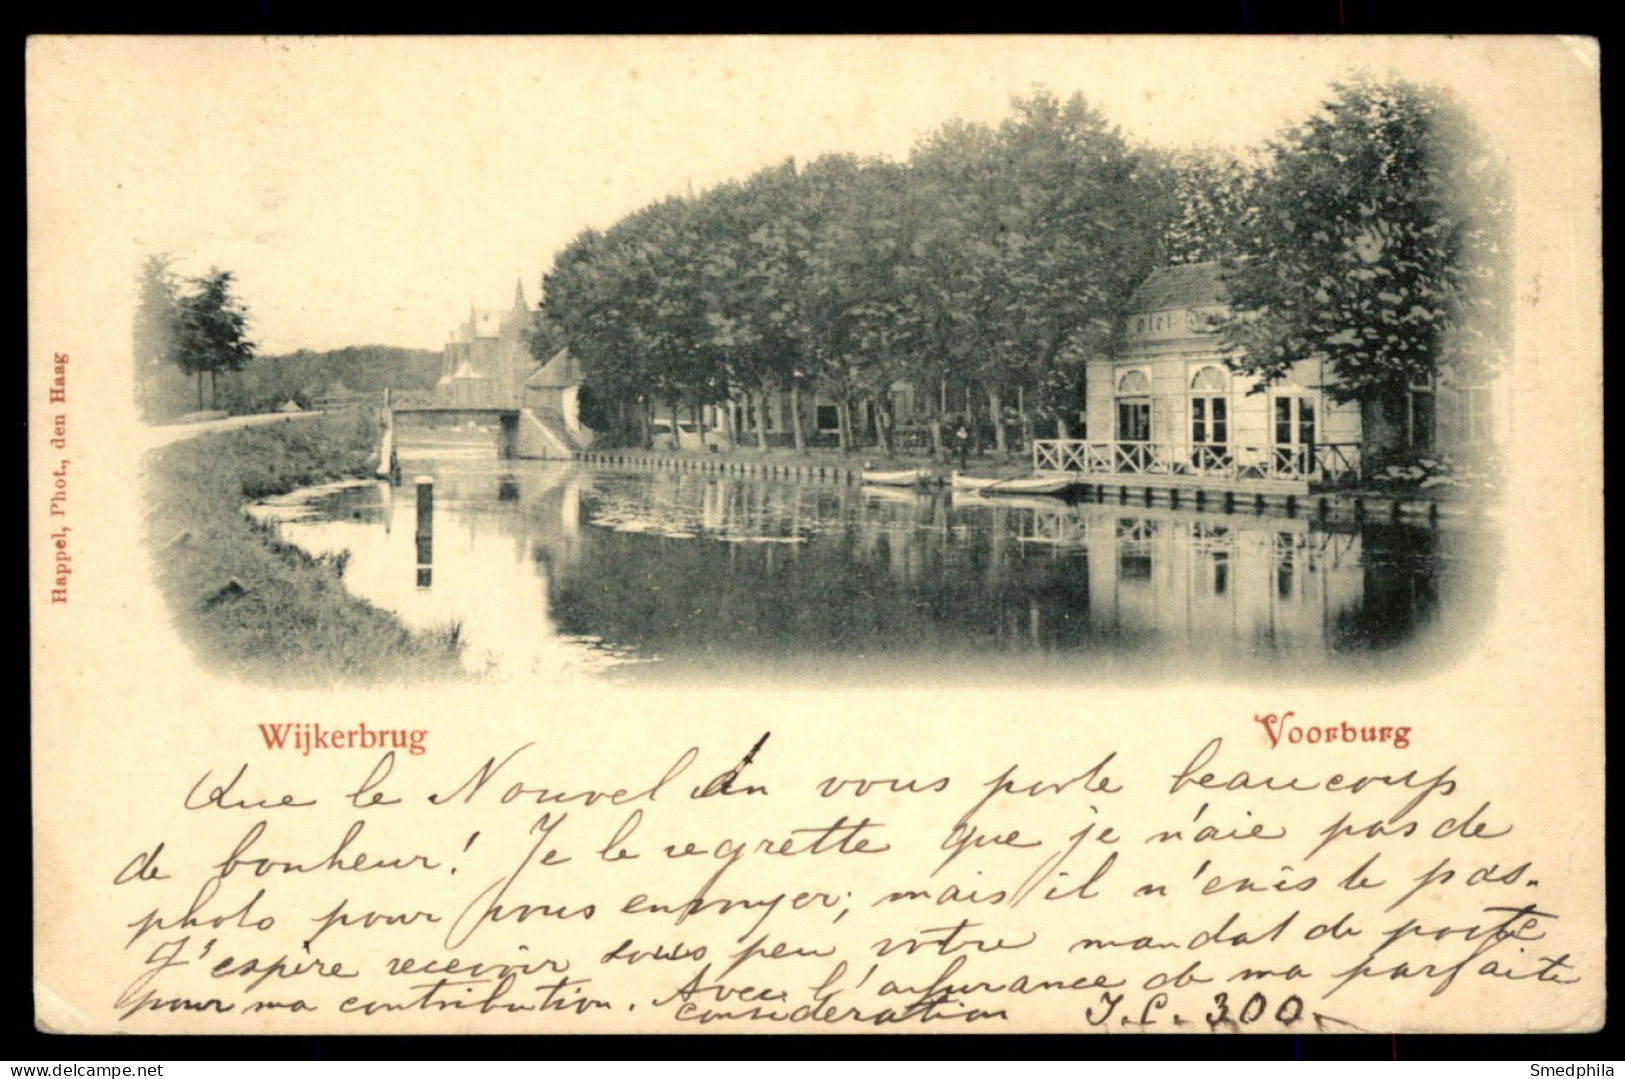 Hotel
Happel, Phot., den Haag
Wijkerbrug
Voorburg
Que le Nouvel An vous porte beaucoup
de bonheur! Je le regrette que je n'aie pas de
photo pour vous envoyer; mais il n'existe pas.
J'espère recevoir sous peu votre mandat de poste
pour ma contribution. Avec l'assurance de ma parfaite
considération J.C. 300.
www.delcampe.net
Smedphila